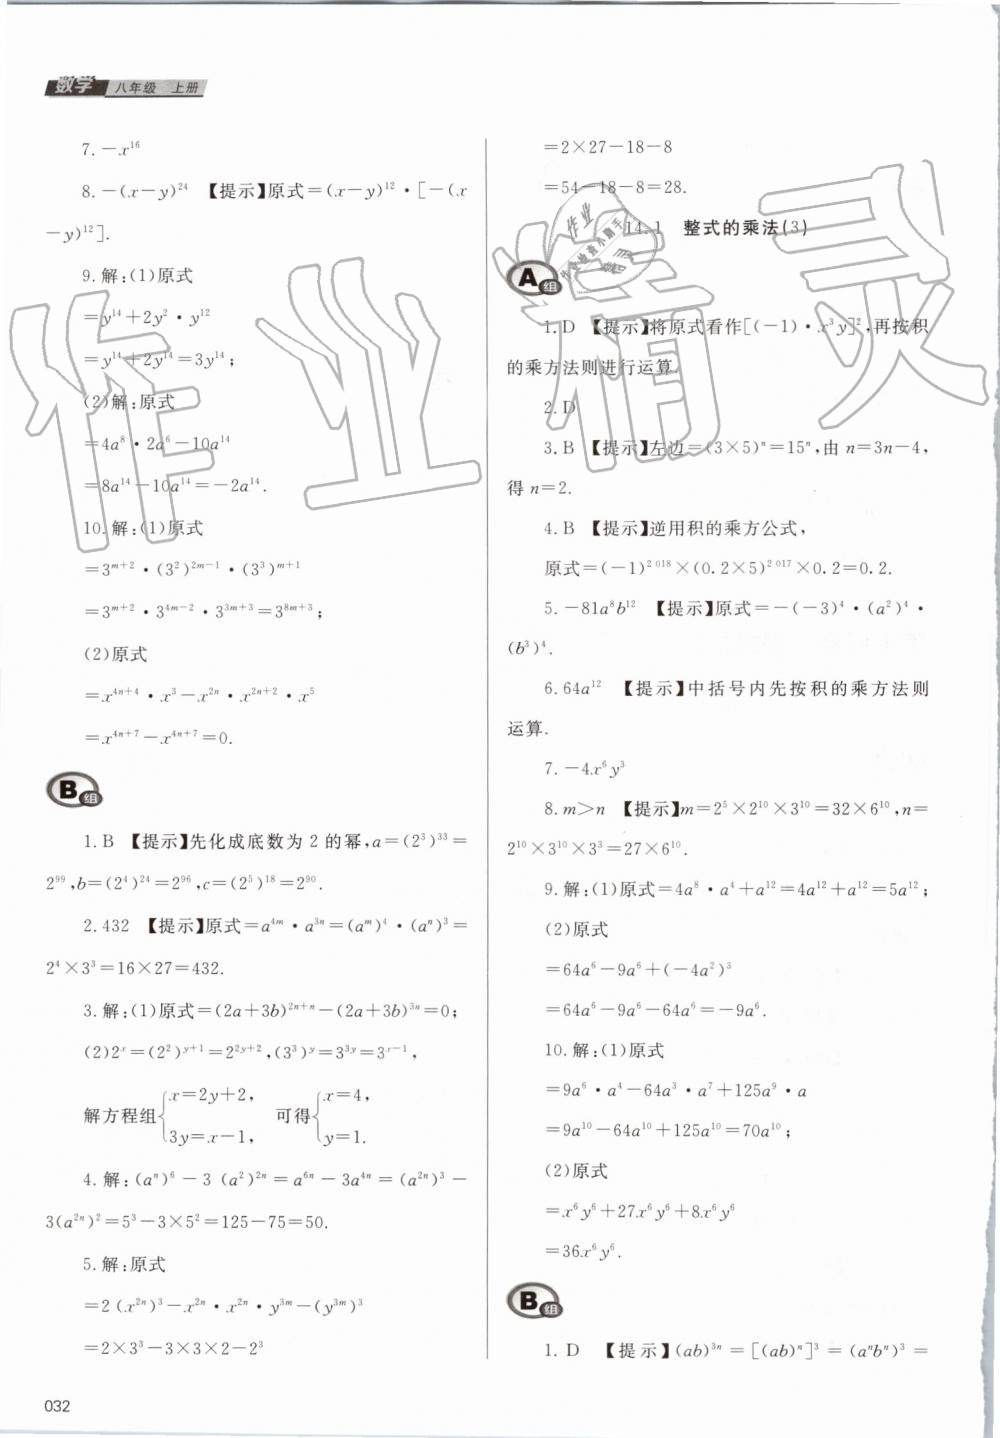 数学 八年级 上册
7. -x¹⁶
8. -(x-y)²⁴ 【提示】原式=(x-y)¹²·[-(x
-y)¹²].
9. 解:(1)原式
=y¹⁴+2y²·y¹²
=y¹⁴+2y¹⁴=3y¹⁴;
(2)解:原式
=4a⁸·2a⁶-10a¹⁴
=8a¹⁴-10a¹⁴=-2a¹⁴.
10. 解:(1)原式
=3ᵐ⁺²·(3²)²ᵐ⁻¹·(3³)ᵐ⁺¹
=3ᵐ⁺²·3⁴ᵐ⁻²·3³ᵐ⁺³=3⁸ᵐ⁺³;
(2)原式
=x⁴ⁿ⁺⁴·x³-x²ⁿ·x²ⁿ⁺²·x⁵
=x⁴ⁿ⁺⁷-x⁴ⁿ⁺⁷=0.
B组
1. B 【提示】先化成底数为 2 的幂,a=(2³)³³=
2⁹⁹,b=(2⁴)²⁴=2⁹⁶,c=(2⁵)¹⁸=2⁹⁰.
2. 432 【提示】原式=a⁴ᵐ·a³ⁿ=(aᵐ)⁴·(aⁿ)³=
2⁴×3³=16×27=432.
3. 解:(1)原式=(2a+3b)²ⁿ⁺ⁿ-(2a+3b)³ⁿ=0;
(2)2ˣ=(2²)ʸ⁺¹=2²ʸ⁺²,(3³)ʸ=3³ʸ=3ˣ⁻¹,
解方程组{x=2y+2, 3y=x-1, 可得{x=4, y=1.
4. 解:(aⁿ)⁶-3(a²)²ⁿ=a⁶ⁿ-3a⁴ⁿ=(a²ⁿ)³-
3(a²ⁿ)²=5³-3×5²=125-75=50.
5. 解:原式
=2(x²ⁿ)³-x²ⁿ·x²ⁿ·y³ᵐ-(y³ᵐ)³
=2×3³-3×3×2-2³
032
=2×27-18-8
=54-18-8=28.
14.1 整式的乘法(3)
A组
1. D 【提示】将原式看作[(-1)·x³y]²,再按积
的乘方法则进行运算.
2. D
3. B 【提示】左边=(3×5)ⁿ=15ⁿ,由 n=3n-4,
得 n=2.
4. B 【提示】逆用积的乘方公式,
原式=(-1)²⁰¹⁸×(0.2×5)²⁰¹⁷×0.2=0.2.
5. -81a⁸b¹² 【提示】原式=-(-3)⁴·(a²)⁴·
(b³)⁴.
6. 64a¹² 【提示】中括号内先按积的乘方法则
运算.
7. -4x⁶y³
8. m>n 【提示】m=2⁵×2¹⁰×3¹⁰=32×6¹⁰,n=
2¹⁰×3¹⁰×3³=27×6¹⁰.
9. 解:(1)原式=4a⁸·a⁴+a¹²=4a¹²+a¹²=5a¹²;
(2)原式
=64a⁶-9a⁶+(-4a²)³
=64a⁶-9a⁶-64a⁶=-9a⁶.
10. 解:(1)原式
=9a⁶·a⁴-64a³·a⁷+125a⁹·a
=9a¹⁰-64a¹⁰+125a¹⁰=70a¹⁰;
(2)原式
=x⁶y⁶+27x⁶y⁶+8x⁶y⁶
=36x⁶y⁶.
B组
1. D 【提示】(ab)³ⁿ=[(ab)ⁿ]³=(aⁿbⁿ)³=
作业精灵